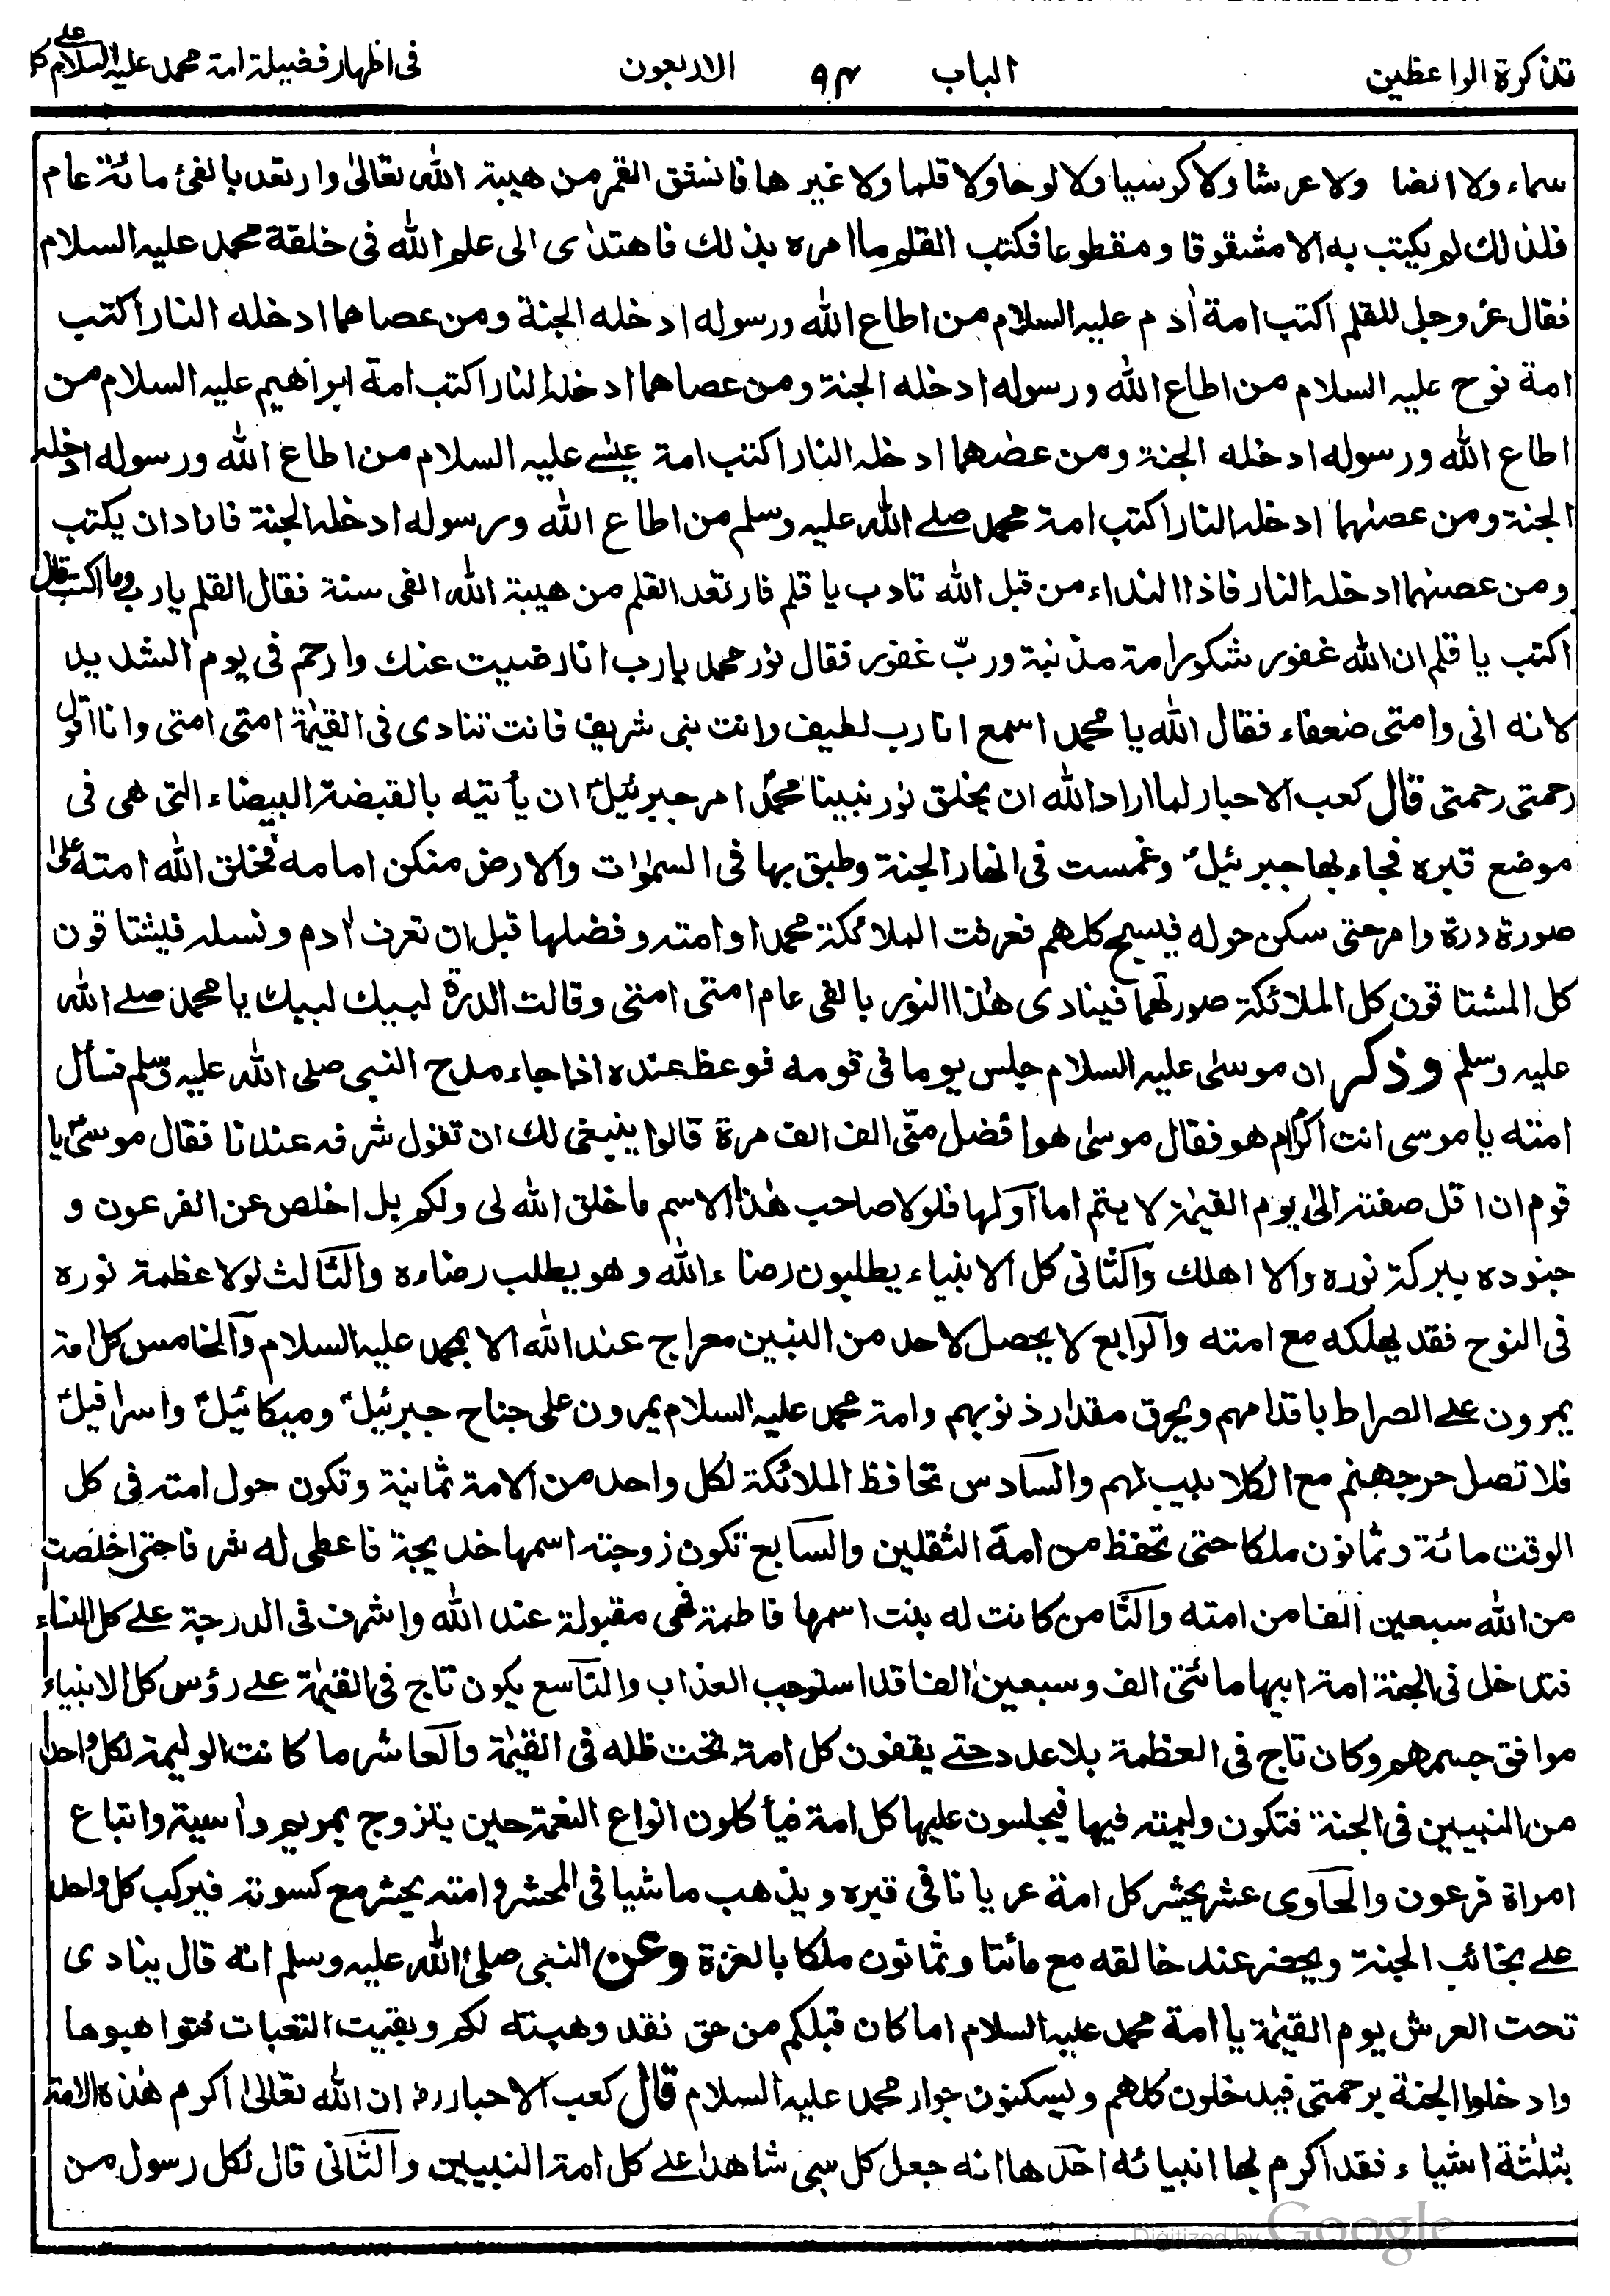 تذكرة الواعظين الباب ٩٤ الاربعون فى اظهار فضيلة امة محمد عليه السلام على كل
سماء ولا ارضا ولا عرشا ولا كرسيا ولا لوحا ولا قلما ولا غيرها فانشق القمر من هيبة الله تعالىٰ وارتعد بالفى مائة عام
فلذالك لم يكتب به الا مشقوقا ومقطوعا فكتب القلم ما امره بذلك فاهتدى الى علم الله فى خلقة محمد عليه السلام
فقال عز وجل للقلم اكتب امة اٰدم عليه السلام من اطاع الله ورسوله ادخله الجنة ومن عصاهما ادخله النار اكتب
امة نوح عليه السلام من اطاع الله ورسوله ادخله الجنة ومن عصاهما ادخله النار اكتب امة ابراهيم عليه السلام من
اطاع الله ورسوله ادخله الجنة ومن عصٰهما ادخله النار اكتب امة عيسے عليه السلام من اطاع الله ورسوله ادخله
الجنة ومن عصىٰهما ادخله النار اكتب امة محمد صلے الله عليه وسلم من اطاع الله ورسوله ادخله الجنة فاراد ان يكتب
ومن عصىٰهما ادخله النار فاذا النداء من قبل الله تادب يا قلم فارتعد القلم من هيبة الله الفى سنة فقال القلم يارب وما اكتب قال
اكتب يا قلم ان الله غفور شكور امة مذنبة وربّ غفور فقال نور محمد يارب انا رضيت عنك وارحم فى يوم الشديد
لانه انى وامتى ضعفاء فقال الله يا محمد اسمع انا رب لطيف وانت نبى شريف فانت تنادى فى القيمٰة امتى امتى وانا اقول
رحمتى رحمتى قال كعب الاحبار لما اراد الله ان يخلق نور نبينا محمدؐ امر جبرئيلؑ ان يأتيه بالقبضة البيضاء التى هى فى
موضع قبره فجاء بها جبرئيلؑ وغمست فى انهار الجنة وطبق بها فى السمٰوات والارض منكن امامه فخلق الله امته علىٰ
صورة درة وامر حتى سكن حوله فيسبح كلهم فعرفت الملائكة محمدا وامته وفضلها قبل ان تعرف اٰدم ونسله فيشتاقون
كل المشتاقون كل الملائكة صورتهما فينادى هٰذا النور بالفى عام امتى امتى وقالت الدرة لبيك لبيك يا محمد صلے الله
عليه وسلم وذكر ان موسٰى عليه السلام جلس يوما فى قومه فوعظ عنده اذا جاء مدح النبى صلى الله عليه وسلم فسأل
امته يا موسى انت اكرم ام هو فقال موسٰى هو افضل منّى الف الف مرة قالوا ينبغى لك ان تقول شرفه عندنا فقال موسىٰؑ يا
قوم ان اقل صفته الىٰ يوم القيمٰة لا يتم اما اولها فلولا صاحب هٰذا الاسم ما خلق الله لى ولكم بل اخلص عن الفرعون و
جنوده ببركة نوره والا اهلك والثانى كل الانبياء يطلبون رضاء الله وهو يطلب رضاءه والثالث لولا عظمة نوره
فى النوح فقد يهلكه مع امته والرابع لا يحصل لاحد من النبين معراج عند الله الا بمحمد عليه السلام والخامس كل امة
يمرون علے الصراط باقدامهم ويحرق مقدار ذنوبهم وامة محمد عليه السلام يمرون على جناح جبرئيلؑ وميكائيلؑ واسرافيلؑ
فلا تصل حر جهنم مع الكلاليب لهم والسادس تحافظ الملائكة لكل واحد من الامة ثمانية وتكون حول امته فى كل
الوقت مائة وثمانون ملكا حتى تحفظ من امة الثقلين والسابع تكون زوجته اسمها خديجة فاعطى له شرفا حتى اخلصت
من الله سبعين الفا من امته والثامن كانت له بنت اسمها فاطمة فهى مقبولة عند الله واشرف فى الدرجة علے كل النساء
فتدخل فى الجنة امة ابيها مائتى الف وسبعين الفا قد استوجب العذاب والتاسع يكون تاج فى القيمٰة علے رؤس كل الانبياء
موافق جسمهم وكان تاج فى العظمة بلا عدد حتے يقفون كل امة تحت ظله فى القيمٰة والعاشر ما كانت الوليمة لكل واحد
من النبيين فى الجنة فتكون وليمته فيها فيجلسون عليها كل امة فيأكلون انواع النعمة حين يتزوج بمريم واسية واتباع
امراة فرعون والحاوى عشر يحشر كل امة عريانا فى قبره ويذهب ماشيا فى المحشر وامته يحشر مع كسوته فيركب كل واحد
علے نجائب الجنة ويحضر عند خالقه مع مائتا وثمانون ملكا بالعزة وعن النبى صلى الله عليه وسلم انه قال ينادى
تحت العرش يوم القيمٰة يا امة محمد عليه السلام اما كان قبلكم من حق فقد وهبته لكم وبقيت التعبات فتواهبوها
وادخلوا الجنة برحمتى فيدخلون كلهم ويسكنون جوار محمد عليه السلام قال كعب الاحبار رض ان الله تعالىٰ اكرم هٰذه الامة
بثلٰثة اشياء فقد اكرم بها انبيائه احدها انه جعل كل نبى شاهدا علے كل امة النبيين والثانى قال لكل رسول من
Digitized by Google